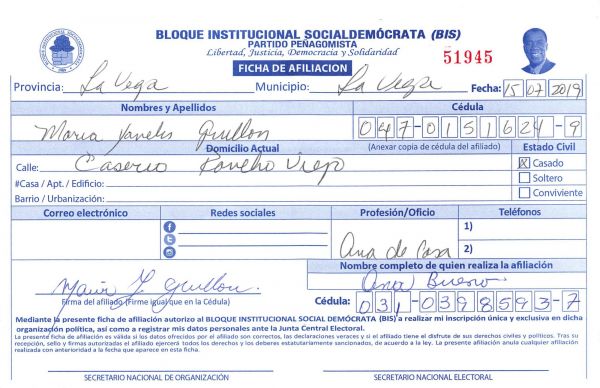 BLOQUE INSTITUCIONAL SOCIALDEMÓCRATA (BIS)
PARTIDO PEÑAGOMISTA
Libertad, Justicia, Democracia y Solidaridad
51945
FICHA DE AFILIACION
Provincia: La Vega Municipio: La Vega Fecha: 15 07 2019
Nombres y Apellidos Cédula
Maria Yanelis Grullon 047-0151624-9
Domicilio Actual (Anexar copia de cédula del afiliado) Estado Civil
Calle: Caserio Rancho Viejo X Casado
#Casa / Apt. / Edificio: Soltero
Barrio / Urbanización: Conviviente
Correo electrónico Redes sociales Profesión/Oficio Teléfonos
1)
Ama de Casa 2)
Nombre completo de quien realiza la afiliación
Maria Y Grullon Ana Bueno
Firma del afiliado (Firme igual que en la Cédula) Cédula: 031-0398593-7
Mediante la presente ficha de afiliación autorizo al BLOQUE INSTITUCIONAL SOCIAL DEMÓCRATA (BIS) a realizar mi inscripción única y exclusiva en dicha
organización política, así como a registrar mis datos personales ante la Junta Central Electoral.
La presente ficha de afiliación es válida si los datos ofrecidos por el afiliado son correctos, las declaraciones veraces y si el afiliado tiene el disfrute de sus derechos civiles y políticos. Tras su
recepción, sello y firmas autorizadas el afiliado ejercerá todos los derechos y los deberes estatutariamente sancionados, de acuerdo a la ley. La presente afiliación anula cualquier afiliación
realizada con anterioridad a la fecha que aparece en esta ficha.
SECRETARIO NACIONAL DE ORGANIZACIÓN SECRETARIO NACIONAL ELECTORAL